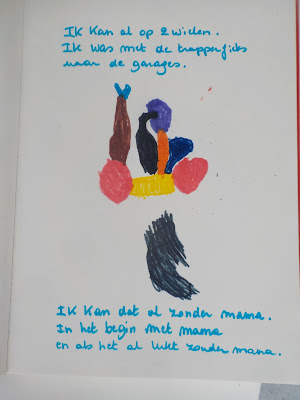 IK Kan al op 2 wielen.
IK was met de trapperfiets
naar de garages.
IK Kan dat al zonder mama.
In het begin met mama
en als het al lukt zonder mama.